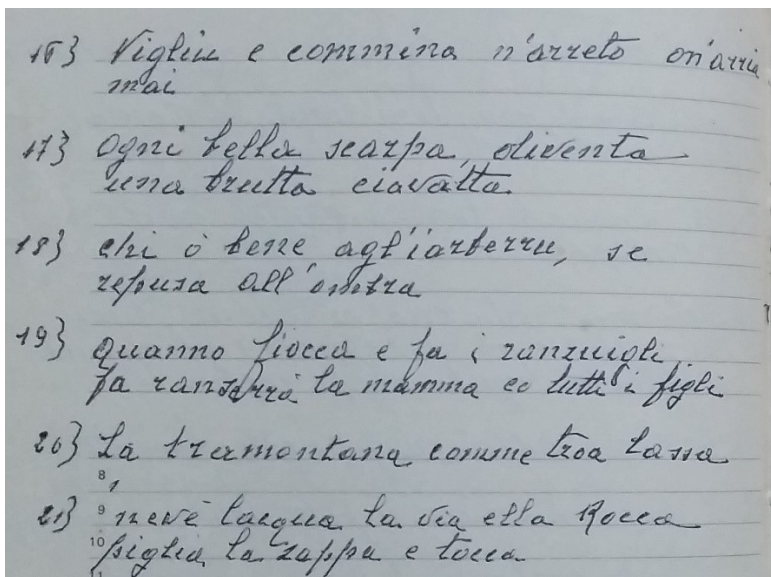 16} Vigliu e commina n'arreto on'arria
mai
17} Ogni bella scarpa, diventa
una brutta ciavatta
18} chi ò bene agl'iarberru, se
repusa all'ombra
19} quanno fiocca e fa i ranzuigli
fa ranserrà la mamma co tutti i figli
20} La tramontana comme troa lassa
8
21} 9 nevè l'acqua la via ella Rocca
10 piglia la zappa e tocca